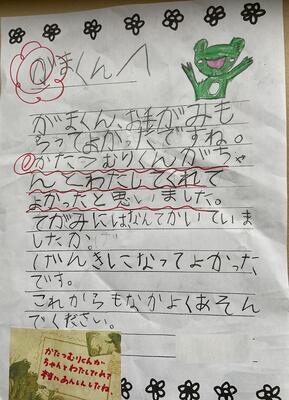 がまくんへ
がまくん、お手がみも
らってよかったですね。
かたつむりくんがちゃ
んとわたしてくれて
よかったと思いました。
てがみにはなんてかいていま
したか。
げんきになってよかった
です。
これからもなかよくあそん
でください。
かたつむりくんが
ちゃんとわたしてくれて
本当にあんしんしたね。